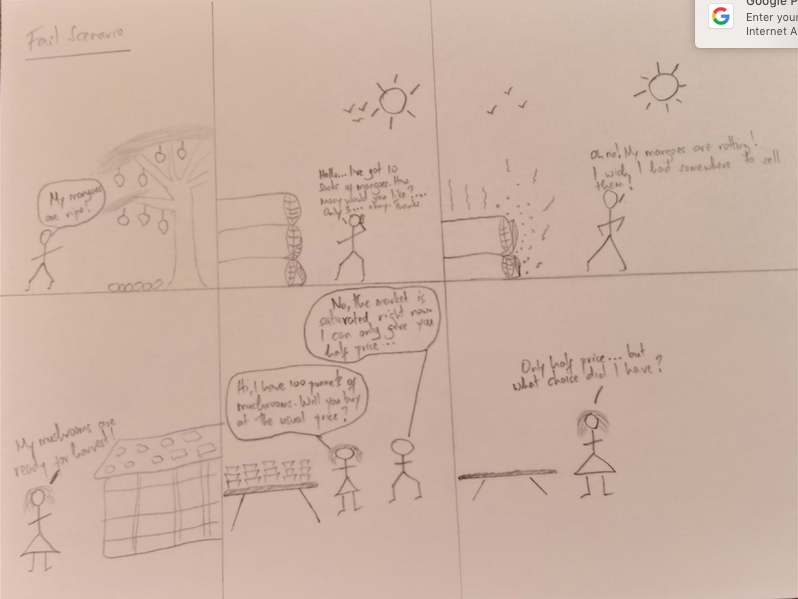 Fail Scenario
My mangoes
are ripe!
Hello... I've got 10
sacks of mangoes. How
many would you like?...
Only 3... okay. Thanks
Oh no! My mangoes are rotting!
I wish I had somewhere to sell
them!
My mushrooms are
ready for harvest!
Hi, I have 100 punnets of
mushrooms. Will you buy
at the usual price?
No, the market is
saturated right now.
I can only give you
half price...
Only half price... but
what choice did I have?
Google P
Enter your
Internet A